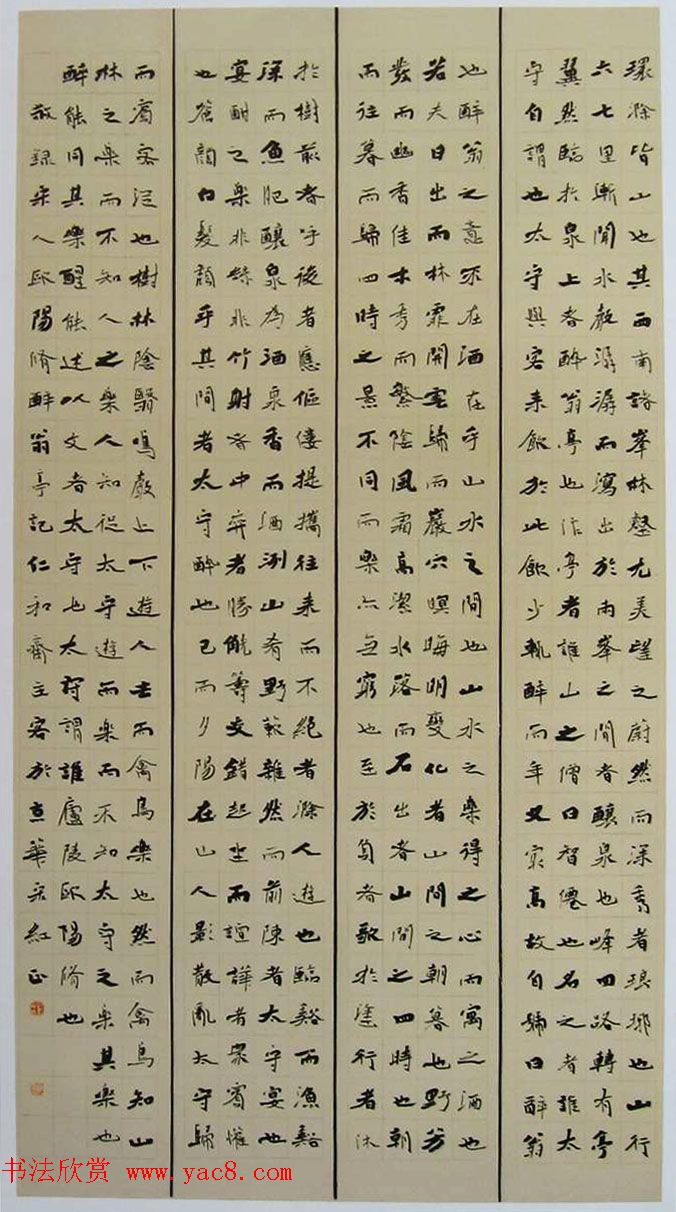 環滁皆山也其西南諸峯林壑尤美望之蔚然而深秀者琅琊也山行
六七里漸聞水聲潺潺而瀉出於兩峯之間者釀泉也峰回路轉有亭
翼然臨於泉上者醉翁亭也作亭者誰山之僧曰智僊也名之者誰太
守自謂也太守與客來飲於此飲少輒醉而年又最高故自號曰醉翁
也醉翁之意不在酒在乎山水之間也山水之樂得之心而寓之酒也
若夫日出而林霏開雲歸而巖穴暝晦明變化者山間之朝暮也野芳
發而幽香佳木秀而繁陰風霜高潔水落而石出者山間之四時也朝
而往暮而歸四時之景不同而樂亦無窮也至於負者歌於塗行者休
於樹前者呼後者應傴僂提攜往來而不絕者滁人遊也臨谿而漁谿
深而魚肥釀泉為酒泉香而酒洌山肴野蔌雜然而前陳者太守宴也
宴酣之樂非絲非竹射者中弈者勝觥籌交錯起坐而諠譁者眾賓懽
也蒼顏白髮頹乎其間者太守醉也已而夕陽在山人影散亂太守歸
而賓客從也樹林陰翳鳴聲上下遊人去而禽鳥樂也然而禽鳥知山
林之樂而不知人之樂人知從太守遊而樂而不知太守之樂其樂也
醉能同其樂醒能述以文者太守也太守謂誰廬陵歐陽脩也
敬錄宋人歐陽脩醉翁亭記仁和齋主客於京華宋紅正
书法欣赏 www.yac8.com